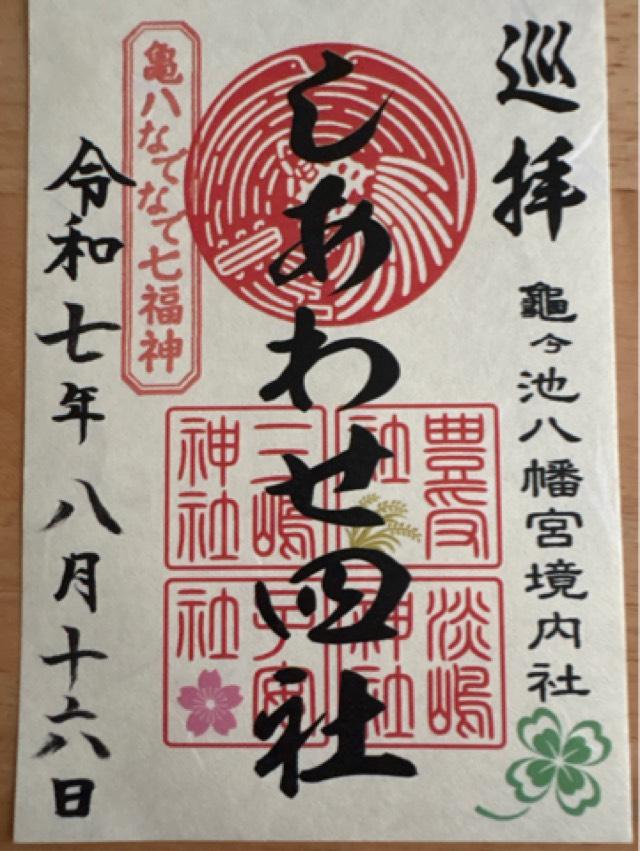 巡拝
龜ヶ池八幡宮境内社
しあわせ四社
豊受社
三嶋神社
淡嶋神社
子安社
亀八なでなで七福神
令和七年八月十六日